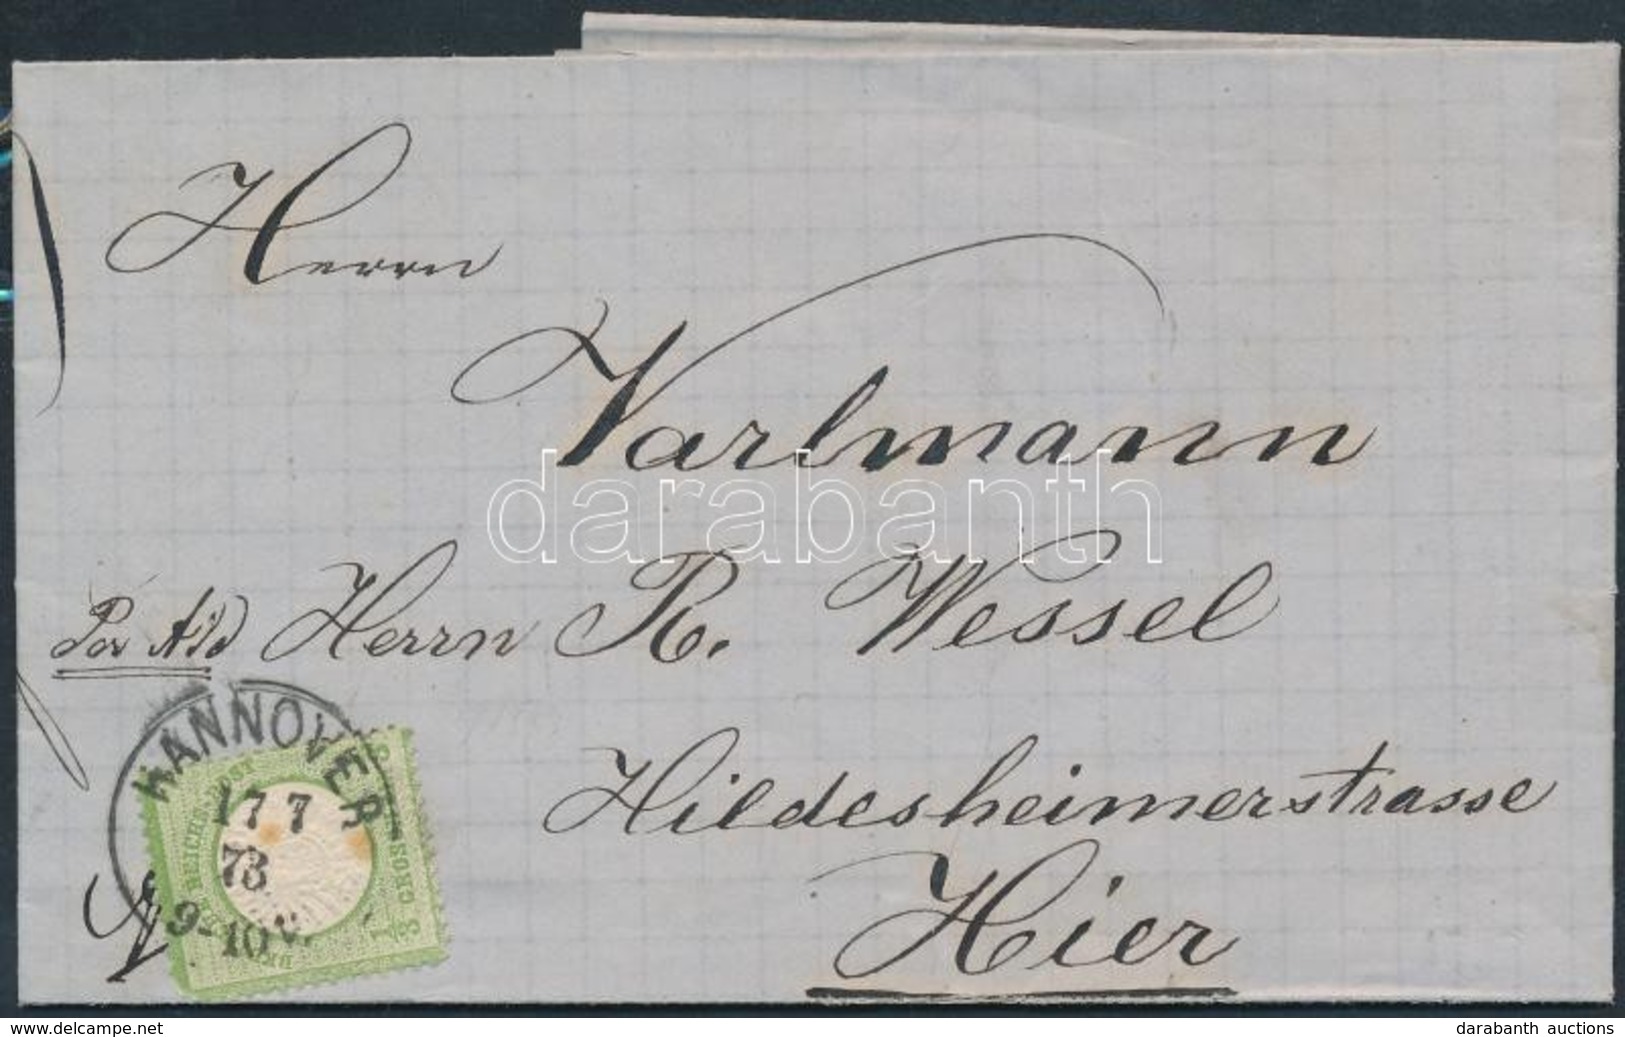 Herrn
Varlmann
darabanth
Per Ad Herrn R. Wessel
Hildesheimerstrasse
Hier
HANNOVER
17 7
73
9-10 V.
REICHS-POST
1/3 GROSCHEN 1/3
www.delcampe.net
darabanth auctions